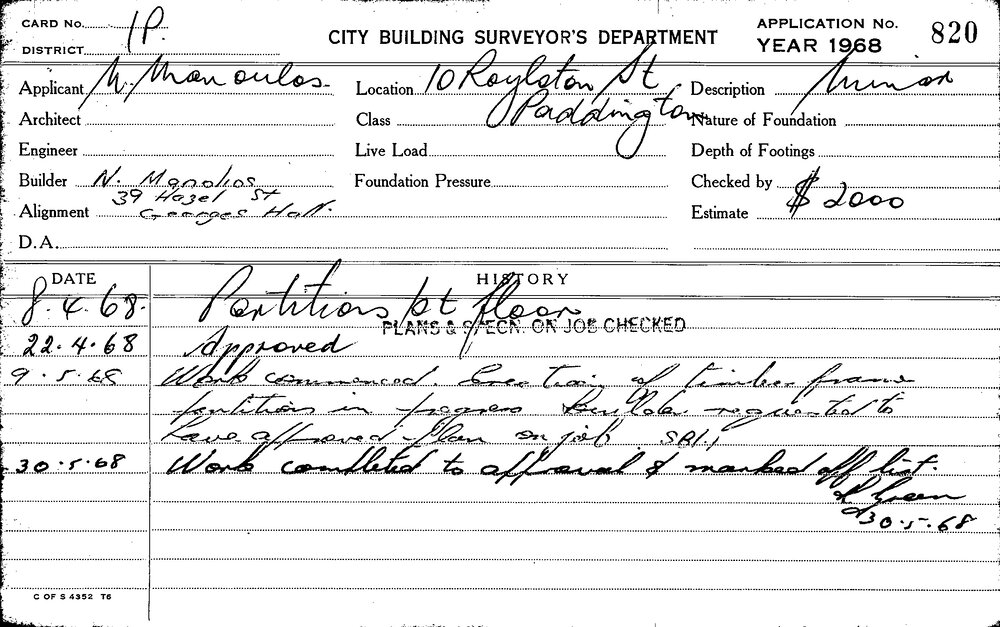 CARD No. 1P.
DISTRICT
CITY BUILDING SURVEYOR'S DEPARTMENT
APPLICATION No. 820
YEAR 1968
Applicant N. Manoulos Location 10 Roylston St Description Minor
Architect Class Paddington Nature of Foundation
Engineer Live Load Depth of Footings
Builder N. Manolios Foundation Pressure Checked by
39 Hazel St
Alignment Georges Hall. Estimate $ 2000
D.A.
DATE HISTORY
8.4.68. Partitions 1st floor
PLANS & SPECN. ON JOB CHECKED
22.4.68 Approved
9.5.68 Work commenced. Erection of timber frame
partitions in progress Builder requested to
have approved plan on job.
30.5.68 Work completed to approval & marked off list.
Green
30.5.68
C OF S 4352 T6